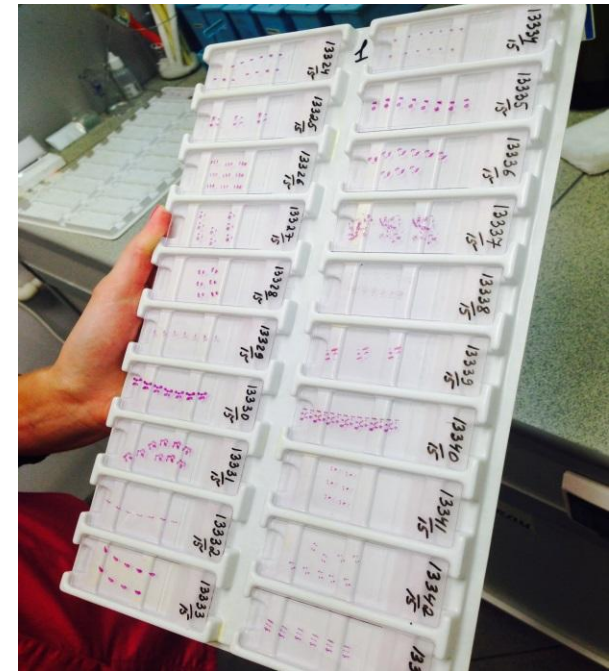 13324
15
13325
15
13326
15
13327
15
13328
15
13329
15
13330
15
13331
15
13332
15
13333
15
13334
15
13335
15
13336
15
13337
15
13338
15
13339
15
13340
15
13341
15
13342
15